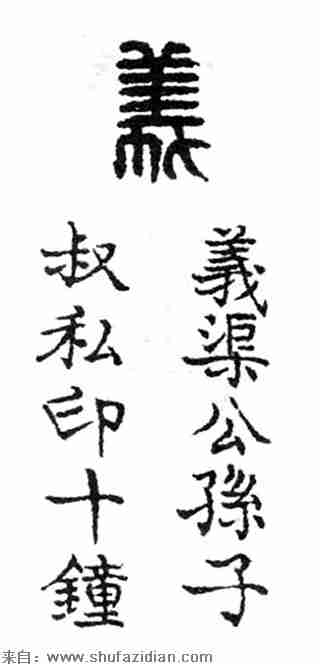 義
義渠公孫子
叔私印十鐘
来自：www.shufazidian.com